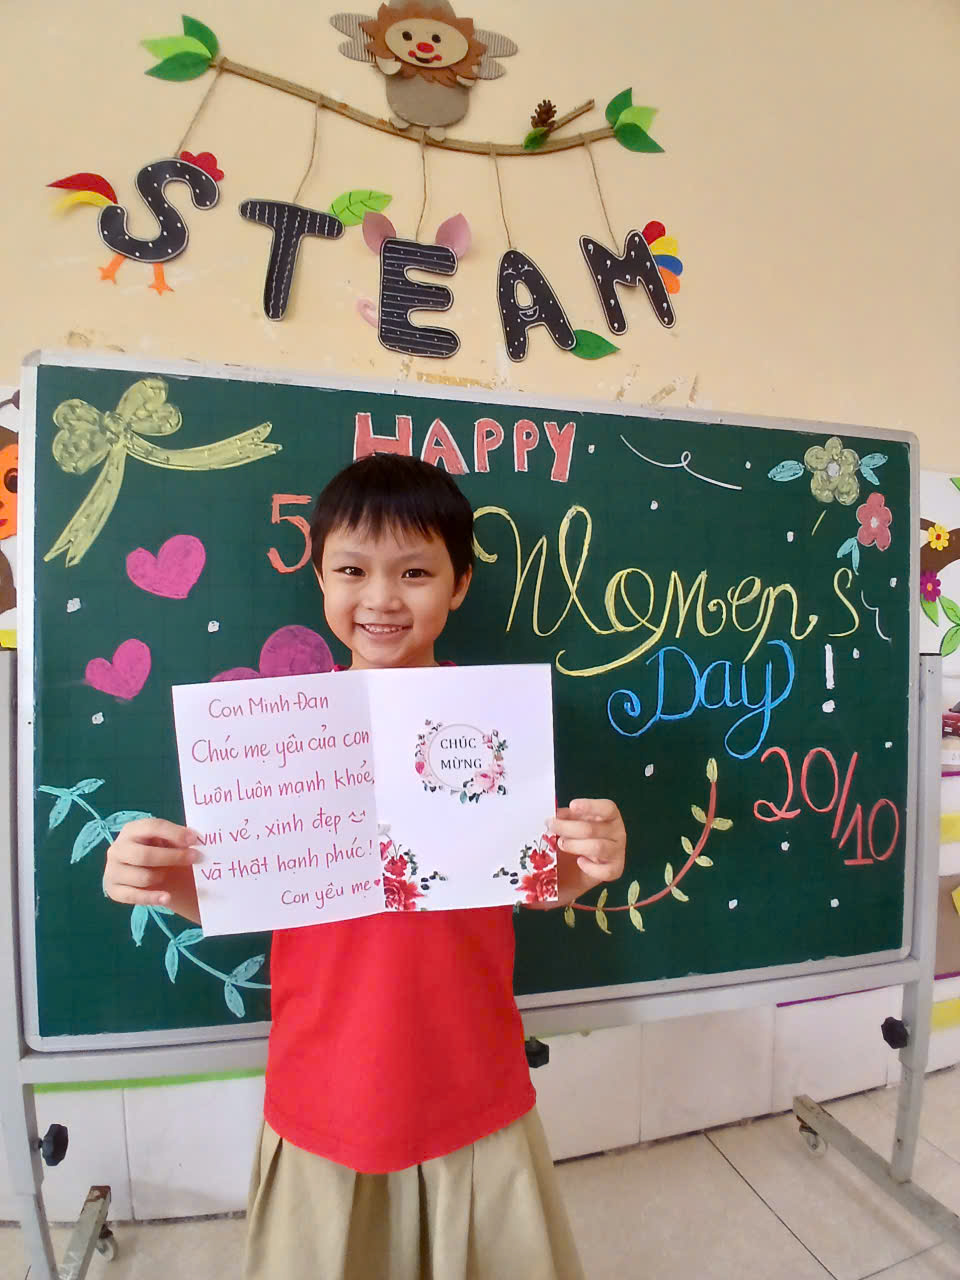 STEAM
HAPPY
5
Women's
Day!
20/10
Con Minh Đan
Chúc mẹ yêu của con
Luôn Luôn mạnh khỏe,
vui vẻ, xinh đẹp
và thật hạnh phúc!
Con yêu mẹ
CHÚC
MỪNG